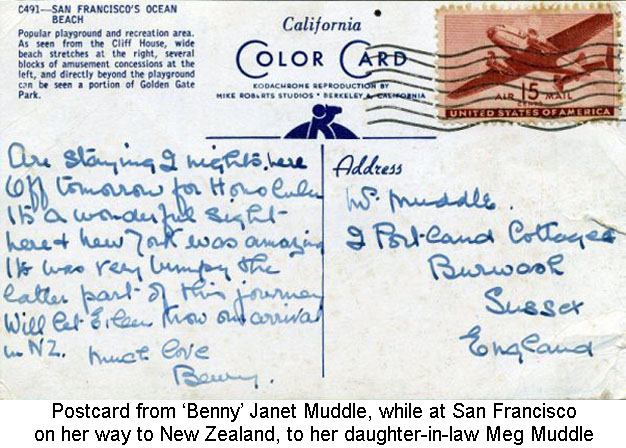 C491—SAN FRANCISCO'S OCEAN
BEACH
Popular playground and recreation area.
As seen from the Cliff House, wide
beach stretches at the right, several
blocks of amusement concessions at the
left, and directly beyond the playground
can be seen a portion of Golden Gate
Park.
California
COLOR CARD
KODACHROME REPRODUCTION BY
MIKE ROBERTS STUDIOS • BERKELEY 2, CALIFORNIA
15
AIR MAIL
CENTS
UNITED STATES OF AMERICA
Are staying 2 nights here
Off tomorrow for Honolulu
Its a wonderful sight
here & New York was amazing
It was very bumpy the
latter part of this journey
Will let Eileen know our arrival
in NZ. Much love
Benny.
Address
Muddle.
2 Portland Cottages
Burwash
Sussex
England
Postcard from 'Benny' Janet Muddle, while at San Francisco
on her way to New Zealand, to her daughter-in-law Meg Muddle